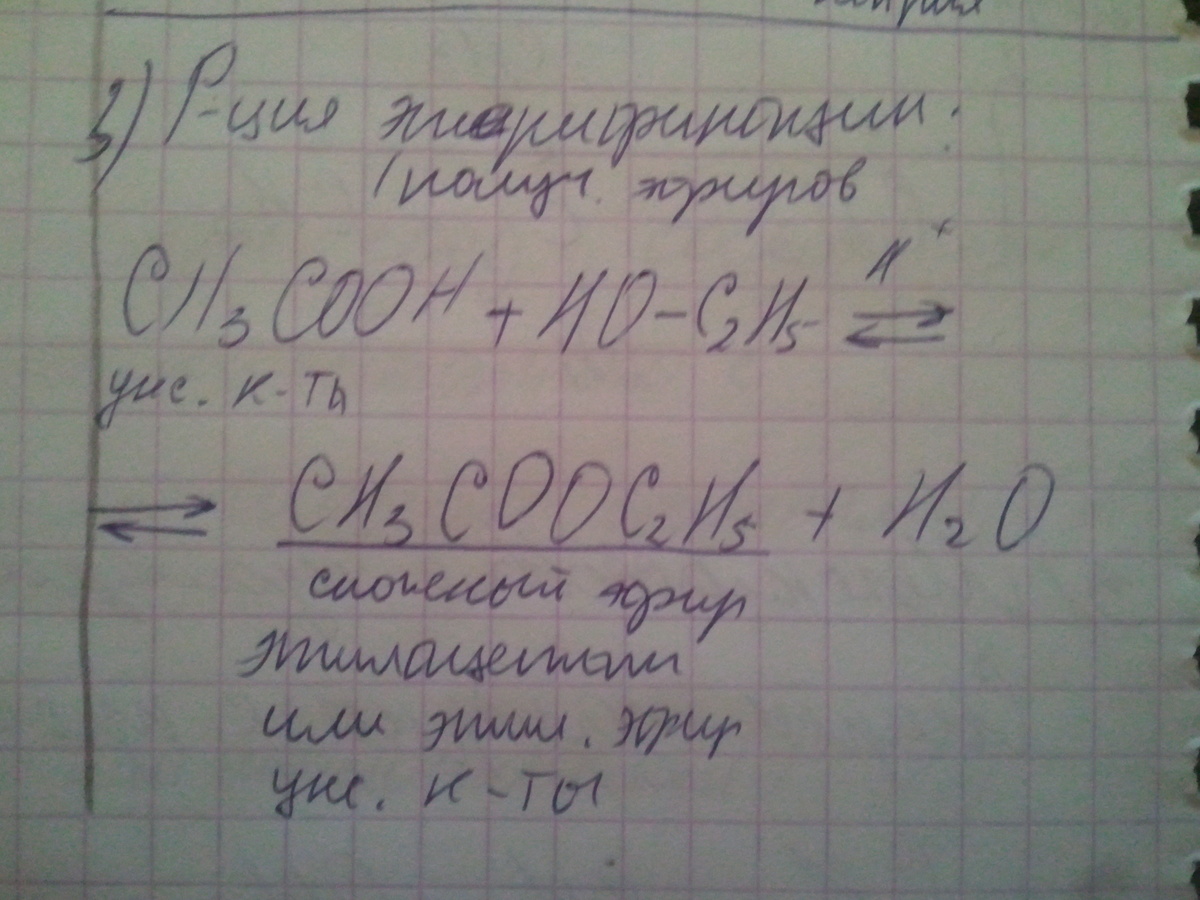 3) Р-ция этерификации:
(получ. эфиров
CH₃COOH + HO-C₂H₅ ⇌ H⁺
укс. к-ты
⇌ CH₃COOC₂H₅ + H₂O
сложный эфир
этилацетат
или этил. эфир
укс. к-ты